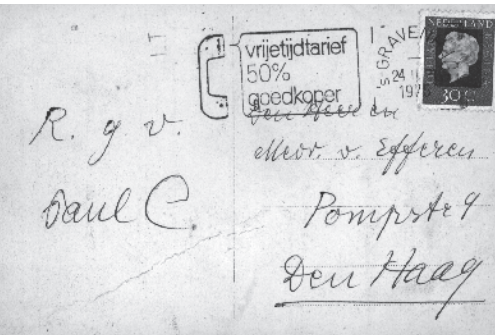 vrijetijdtarief
50%
goedkoper
'sGRAVEN
24
197
NEDERLAND
30 c
R. g v.
Saul C.
Den Heer en
Mevr. v. Efferen
Pompstr 9
Den Haag